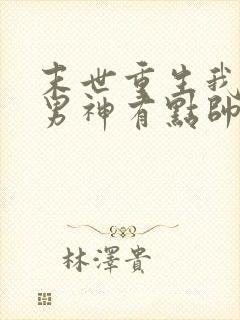 末世重生我
男神有點帥
林澤貴